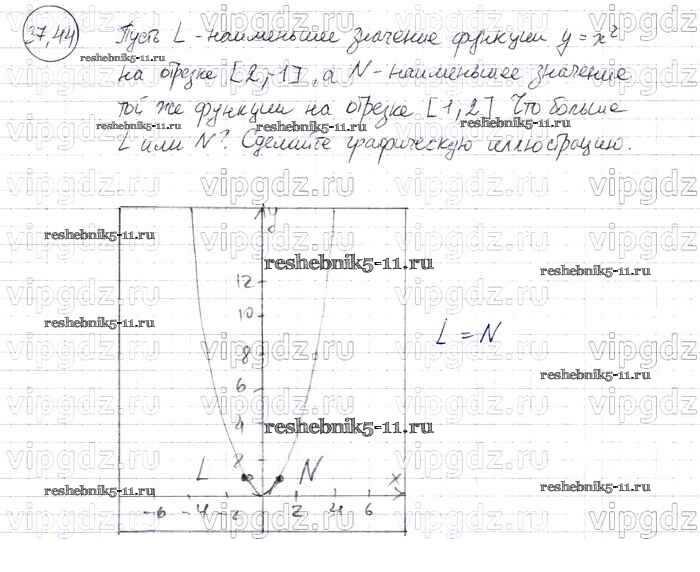 37,44
Пусть L - наименьшее значение функции y = x²
на отрезке [2,-1], а N - наименьшее значение
той же функции на отрезке [1,2]. Что больше
L или N? Сделайте графическую иллюстрацию.
y
12
10
8
6
4
2
L = N
L N x
-6 -4 -2 0 2 4 6
vipgdz.ru
reshebnik5-11.ru